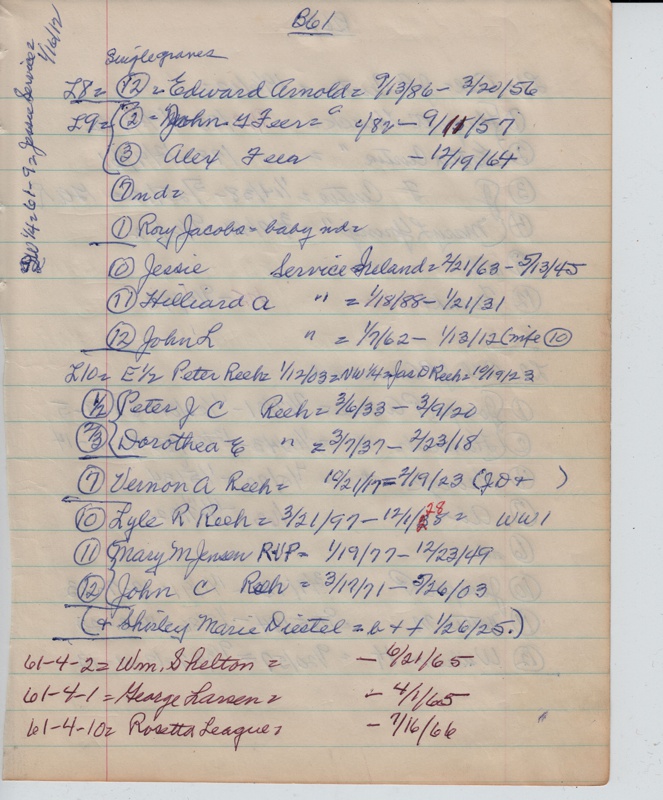 B61
Single graves
L8 = (12) = Edward Arnold = 9/13/86 - 3/20/56
L9 = (2) = John Y Feer = /82 - 9/11/57
(3) Alex Feer - 12/19/64
(7) nd =
(1) Rory Jacobs = baby nd =
(10) Jessie Service Ireland = 2/21/63 - 5/13/45
(11) Hilliard A " = 1/18/88 - 1/21/31
(12) John L " = 1/7/62 - 1/13/12 (wife (10)
L10 = E 1/2 Peter Reeh = 1/12/03 = NW 1/4 = Jas D Reeh = 10/19/23
(1/2) Peter J C Reeh = 3/6/33 - 3/9/20
(2/3) Dorothea E " = 3/7/37 - 2/23/18
(7) Vernon A Reeh = 10/21/17 = 2/19/23 (J D + )
(10) Lyle R Reeh = 3/21/97 - 12/1/28 = WW1
(11) Mary M Jensen RVP = 1/19/77 - 12/23/49
(12) John C Reeh = 3/17/71 - 5/26/03
(+ Shirley Marie Diestel = b + + 1/26/25.)
61-4-2 = Wm. Shelton = - 6/21/65
61-4-1 = George Larsen = - 4/1/65
61-4-10 = Rosetta League = - 7/16/66
NW 1/4 = 61-9 = Jessie Service =
1/16/12